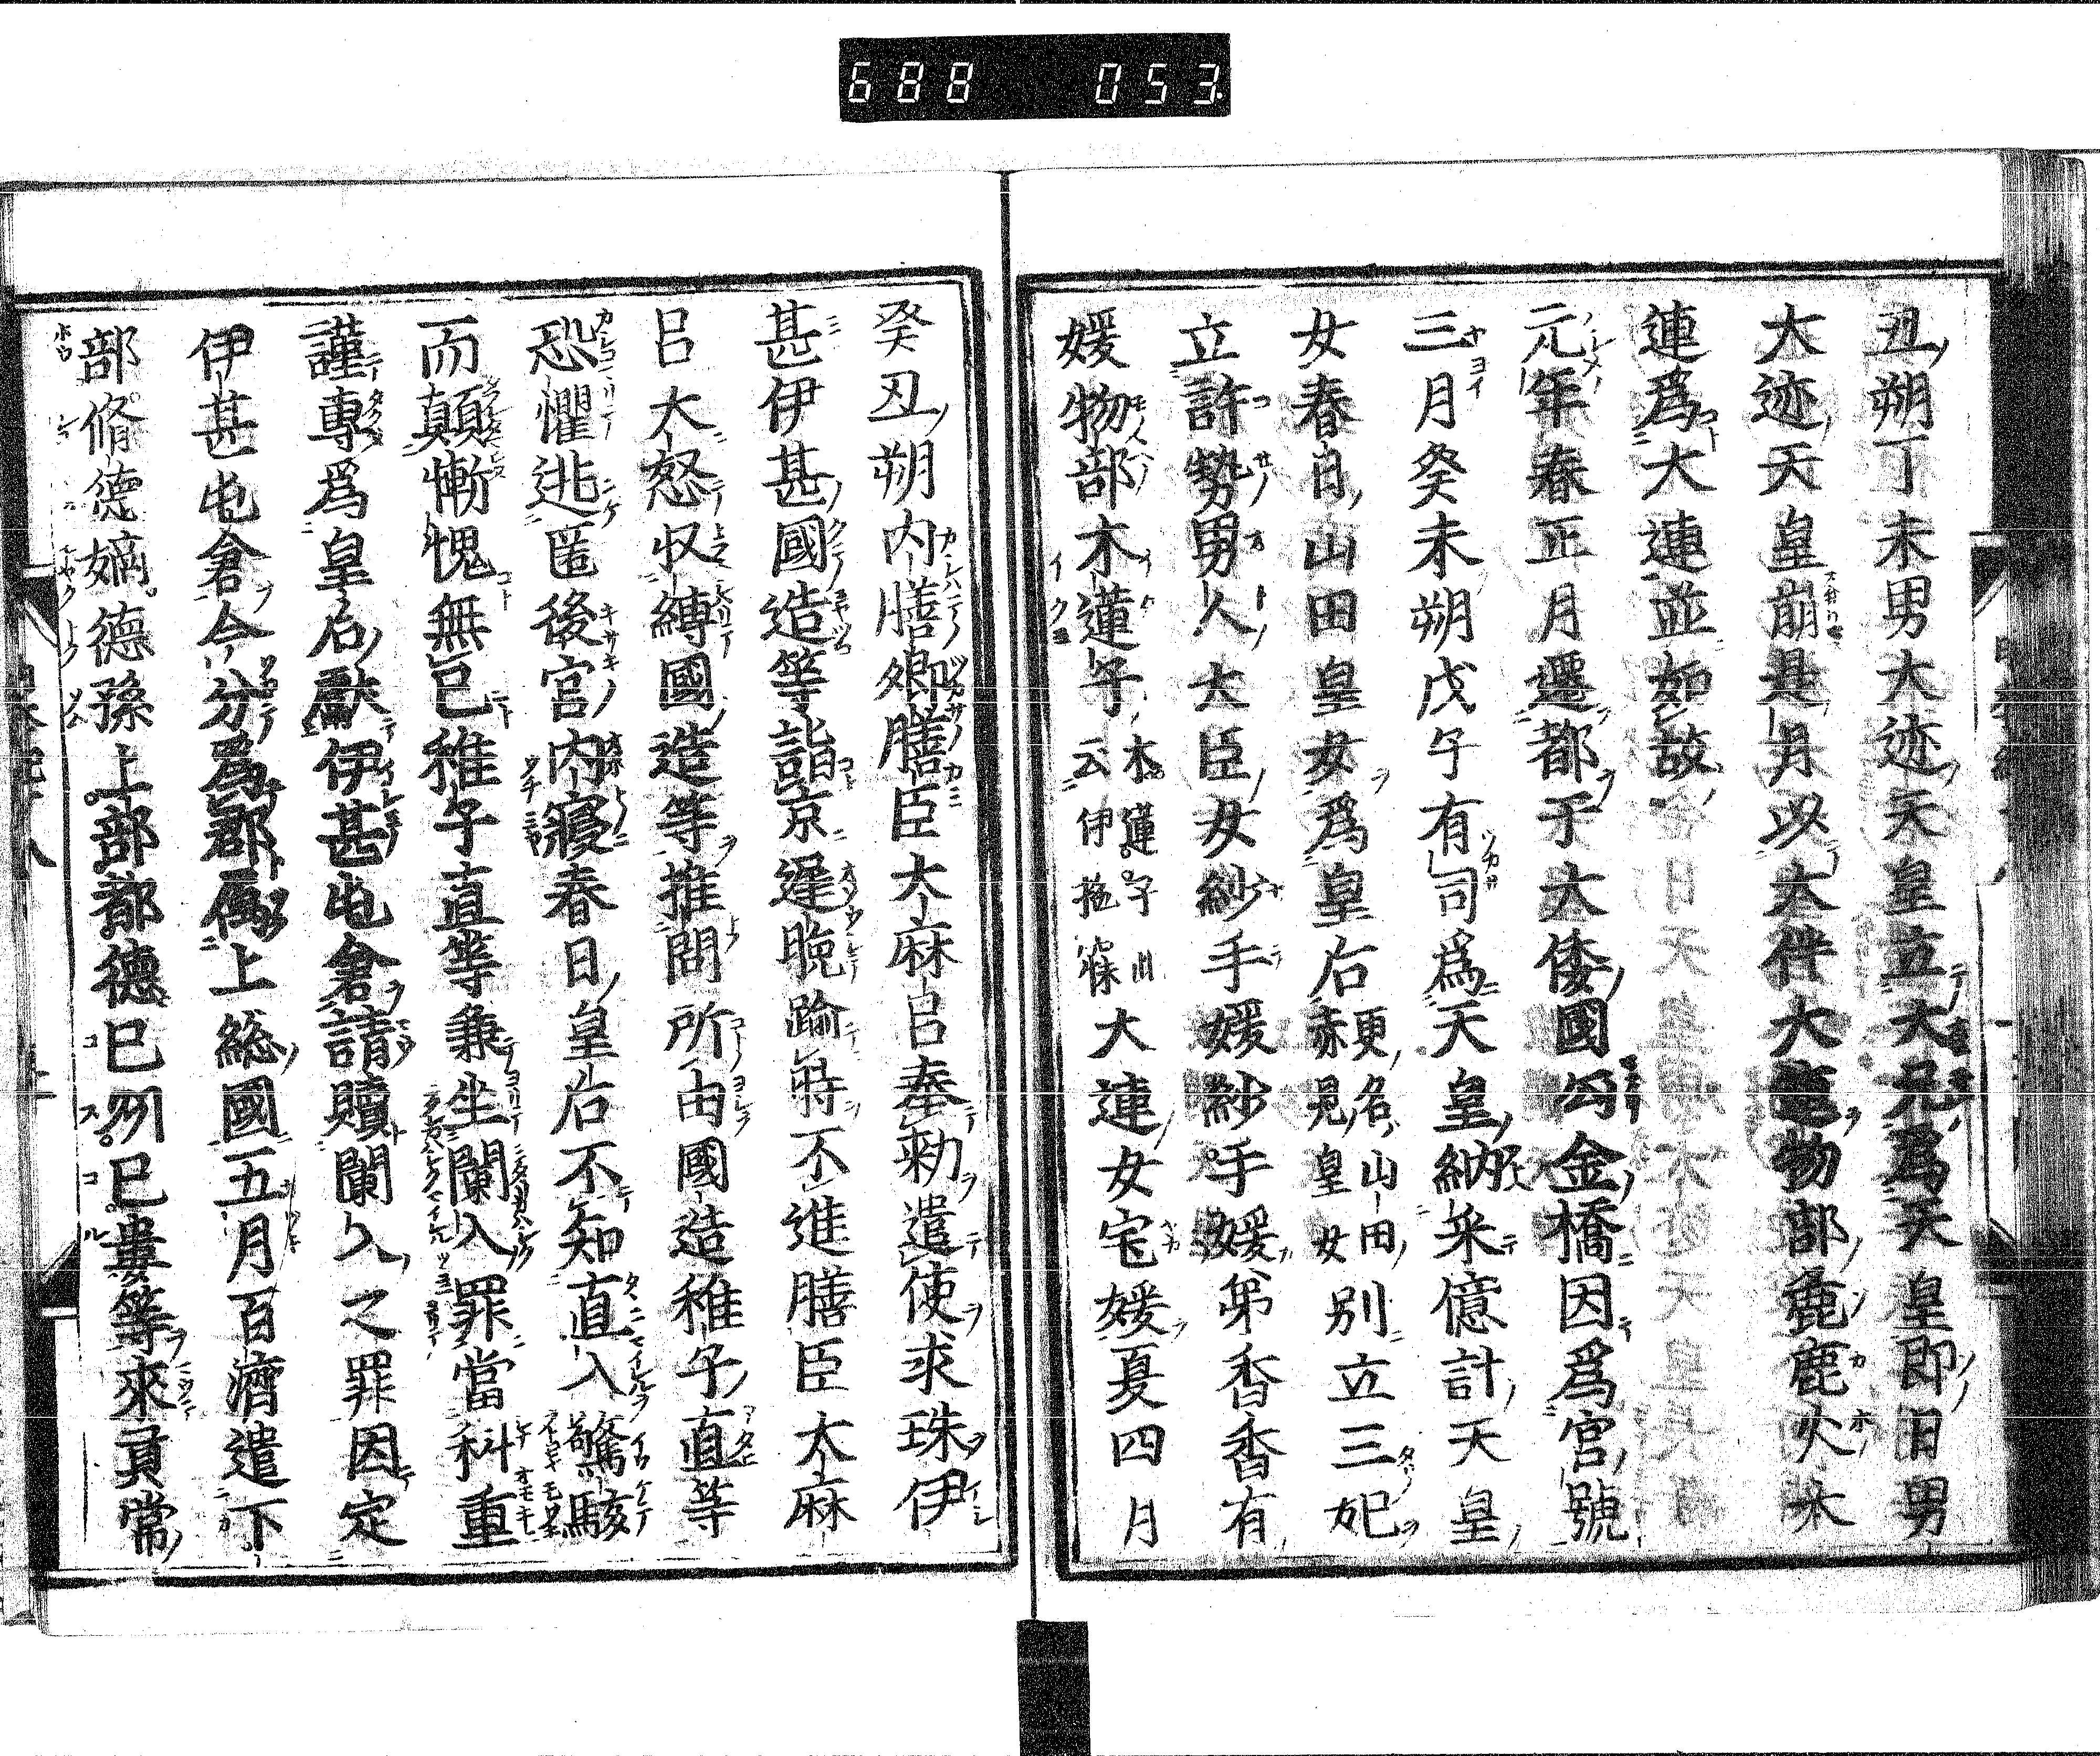 688 053
丑朔丁未男大迹天皇立大兄爲天皇即日男
大迹天皇崩是月以大伴大連物部麁鹿火大
連爲大連並如故
元年春正月遷都于大倭國勾金橋因爲宮號
三月癸未朔戊午有司爲天皇納采億計天皇
女春日山田皇女爲皇后更名山田赤見皇女別立三妃
立許勢男人大臣女紗手媛紗手媛弟香香有
媛物部木蓮子木蓮子此云伊拖寐大連女宅媛夏四月
癸丑朔内膳卿膳臣大麻呂奉勅遣使求珠伊
甚伊甚國造等詣京遲晩踰時不進膳臣大麻
呂大怒収縛國造等推問所由國造稚子直等
恐懼逃匿後宮内寢春日皇后不知直入驚駭
而顛慚愧無已稚子直等兼坐闌入罪當科重
謹專爲皇后獻伊甚屯倉請贖闌入之罪因定
伊甚屯倉今分爲郡屬上総國五月百濟遣下
部脩德嫡德孫上部都德巳州巳婁等來貢常